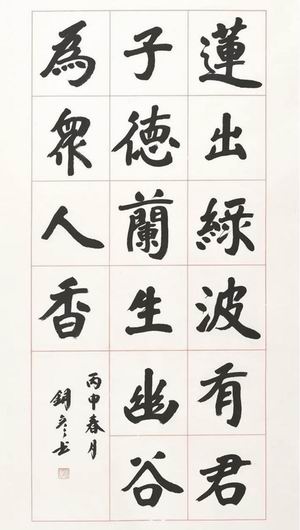 蓮出綠波有君
子德蘭生幽谷
為眾人香
丙申春月